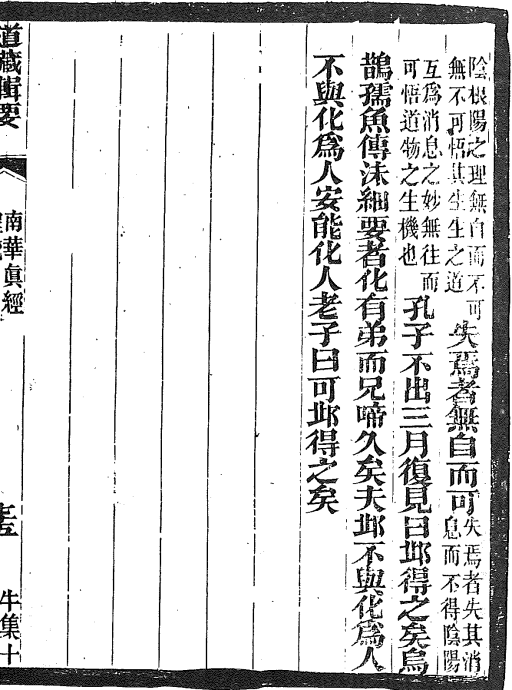 陰根陽之理無自而不可
無不可悟其生生之道
失焉者無自而可
失焉者失其消
息而不得陰陽
互爲消息之妙無往而
可悟道物之生機也
孔子不出三月復見曰邱得之矣烏
鵲孺魚傳沫細要者化有弟而兄啼久矣夫邱不與化爲人
不與化爲人安能化人老子曰可邱得之矣
道藏輯要
南華眞經
牛集十